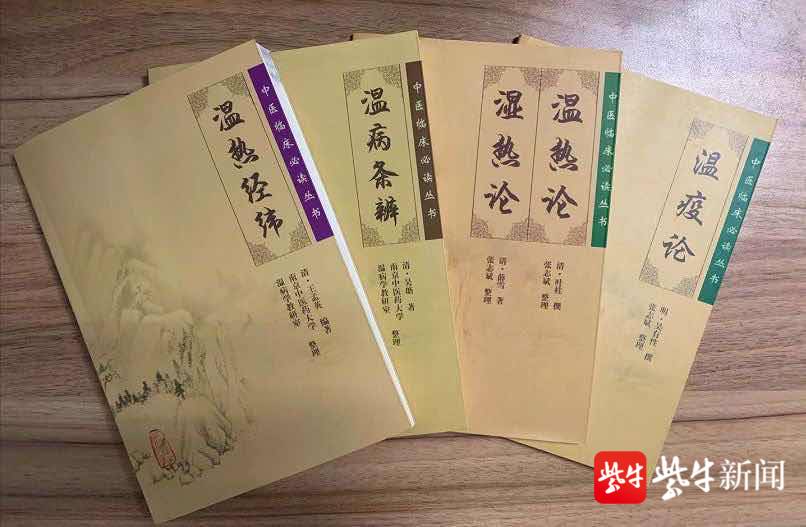 中医临床必读丛书
温热经纬
清·王孟英 编著
南京中医药大学
温病学教研室 整理
中医临床必读丛书
温病条辨
清·吴瑭 著
南京中医药大学
温病学教研室 整理
中医临床必读丛书
温热论
湿热论
清·叶桂 撰
张志斌 整理
清·薛雪 著
张志斌 整理
中医临床必读丛书
温疫论
明·吴有性 撰
张志斌 整理
紫牛
紫牛新闻